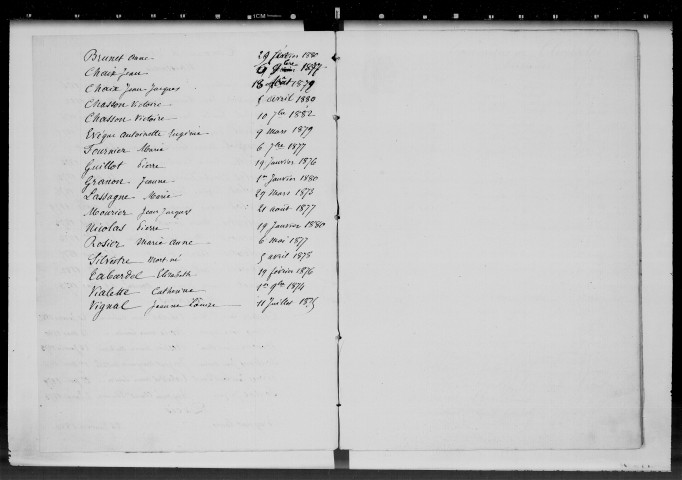 1CM
Brunet Anne 29 février 1880
Chaix Jean 9 9bre 1877
Chaix Jean Jacques 18 août 1879
Chasson Victoire 5 avril 1880
Chasson Victoire 10 7bre 1882
Evêque Antoinette Eugénie 9 mars 1879
Fournier Marie 6 7bre 1877
Guillot Pierre 19 janvier 1876
Granon Jeanne 1er janvier 1880
Lassagne Marie 29 mars 1873
Mourier Jean Jacques 21 août 1877
Nicolas Pierre 19 janvier 1880
Rosier Marie Anne 6 mai 1877
Silvestre Mort né 5 avril 1875
Tabardel Elisabeth 19 février 1876
Vialette Catherine 1er 9bre 1874
Vignal Jeanne Louise 11 juillet 1875